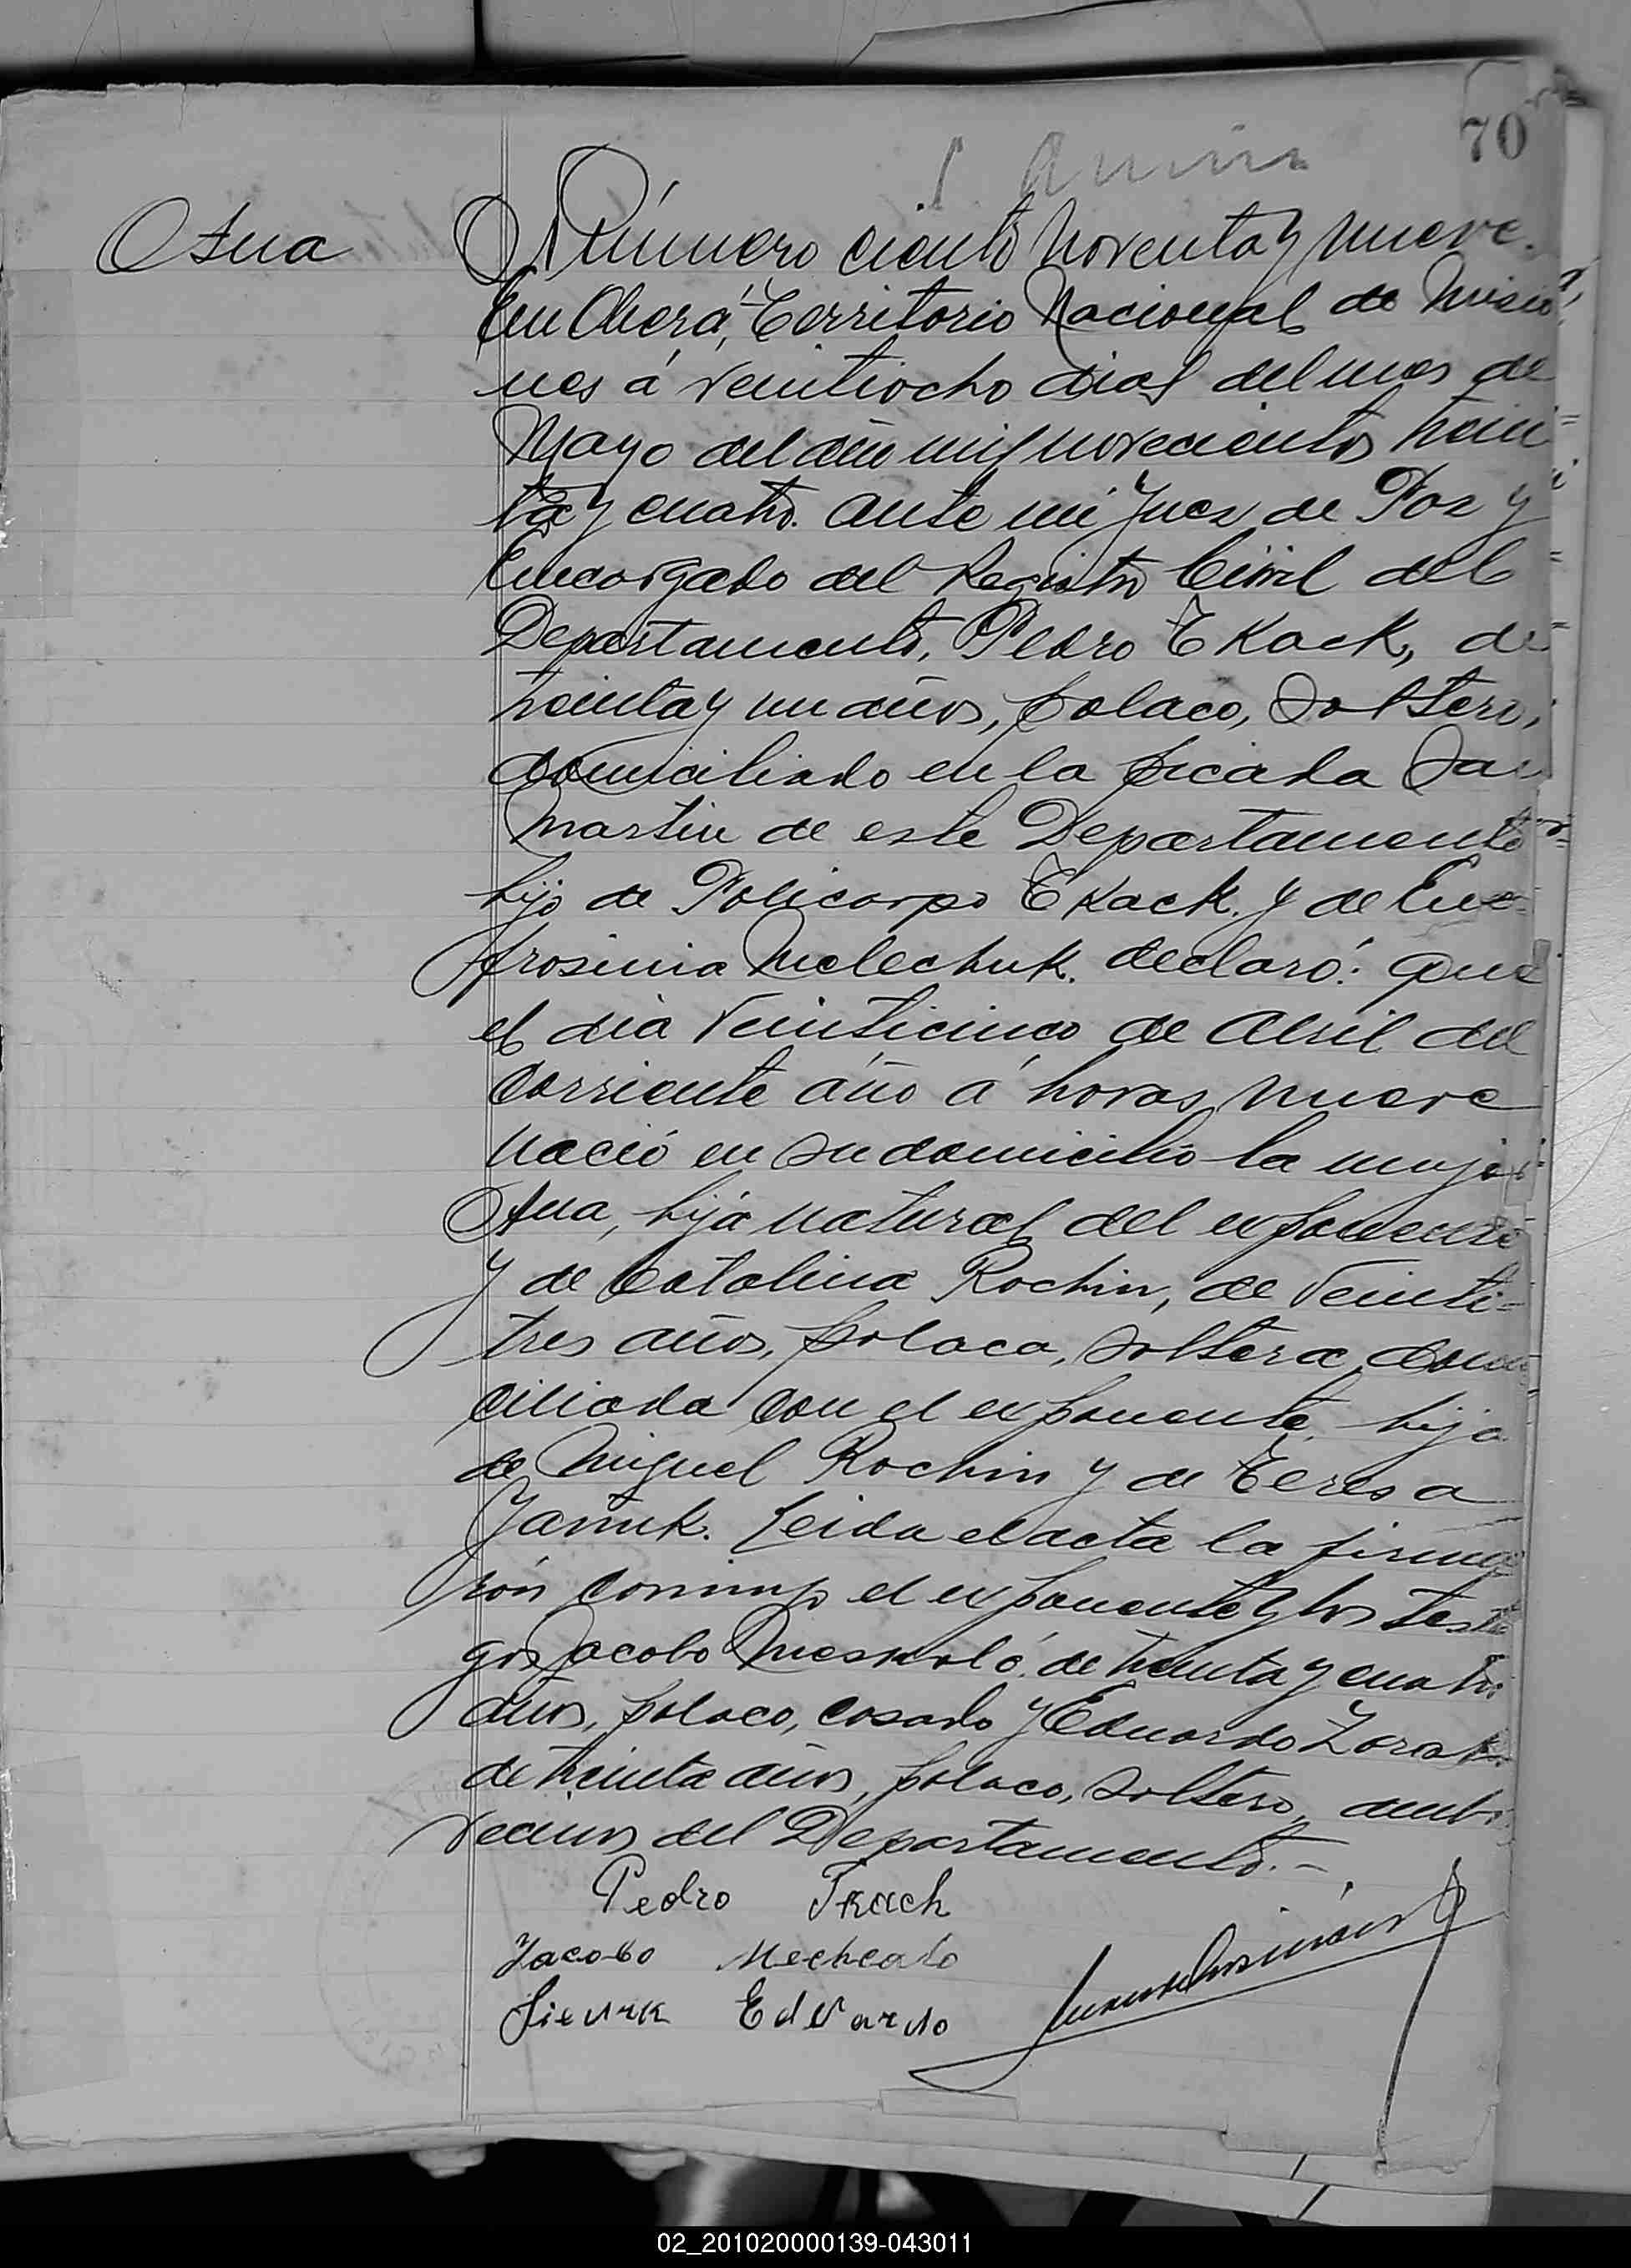 70
Ana
Número ciento noventa y nueve.
En Oberá, Territorio Nacional de Misio
nes á veintiocho dias del mes de
Mayo del año mil novecientos trein
ta y cuatro. ante mi Juez de Paz y
Encargado del Registro Civil del
Departamento, Pedro Tkack, de
treinta y un años, polaco, Soltero,
domiciliado en la picada San
Martin de este Departamento
hijo de Policarpo Tkack y de Eu
frosinia Melechuk. declaró: que
el dia veinticinco de Abril del
corriente año á horas nueve
nació en su domicilio la mujer
Ana, hija natural del exponente
y de Catalina Rochin, de veinti-
tres años, polaca, soltera, domi
ciliada con el exponente, hija
de Miguel Rochin y de Teresa
Leida el acta la firma
ron conmigo el exponente y los testi
gos Jacobo de treinta y cuatro
años, polaco, casado y Eduardo
de treinta años, polaco, soltero, ambos
vecinos del Departamento.-
Pedro Tkach
Jacobo
Edvardo
02_201020000139-043011